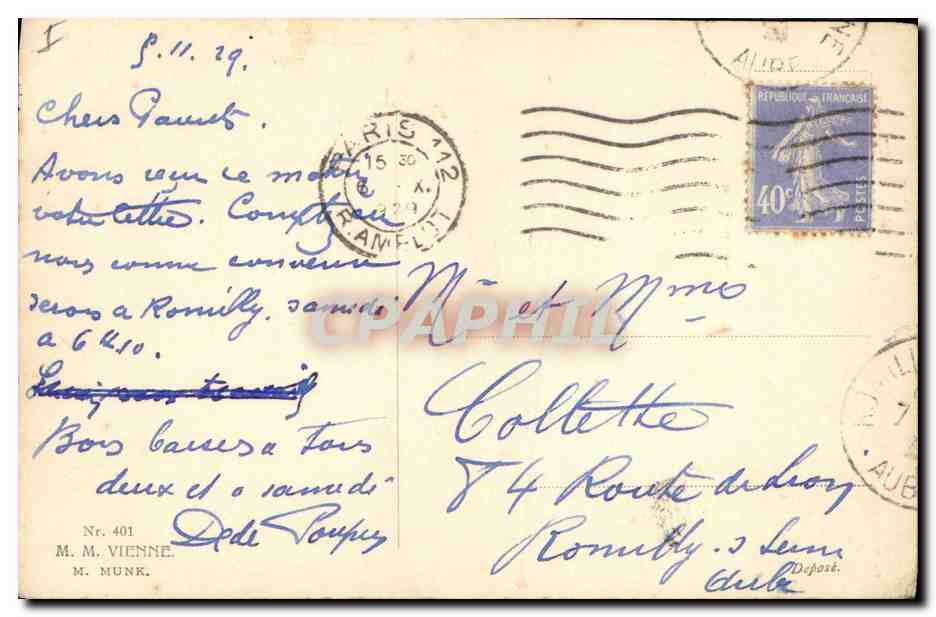 I
5.11.29.
Chers Parrets.
Avons reçu ce matin
votre lettre. Comptez sur
nous comme convenu
serons a Romilly. samedi
a 6h10.
Bons baisers a tous
deux et a samedi
Dede
Nr. 401
M. M. VIENNE.
M. MUNK.
PARIS 112
15 30
X.
1929
R. AMELOT
AUBE
REPUBLIQUE FRANÇAISE
40c
POSTES
CPAPHIL
Mr et Mme
Collette
84 Route de
Romilly. s Seine
Aube
Déposé.
7
AUBE